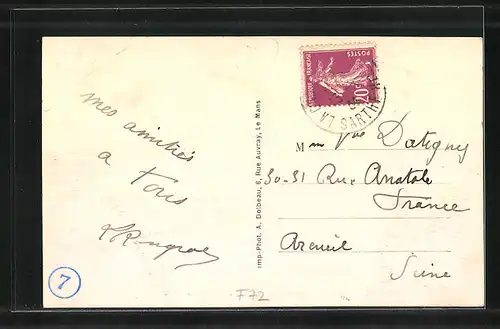 mes amitiés
a Tous
Imp.-Phot. A. Dolbeau, 8, Rue Auvray, Le Mans
POSTES
REPUBLIQUE FRANÇAISE
20c
SARTHE
Mme Vve Datigny
30-31 Rue Anatole
France
Arcueil
Seine
7
F72